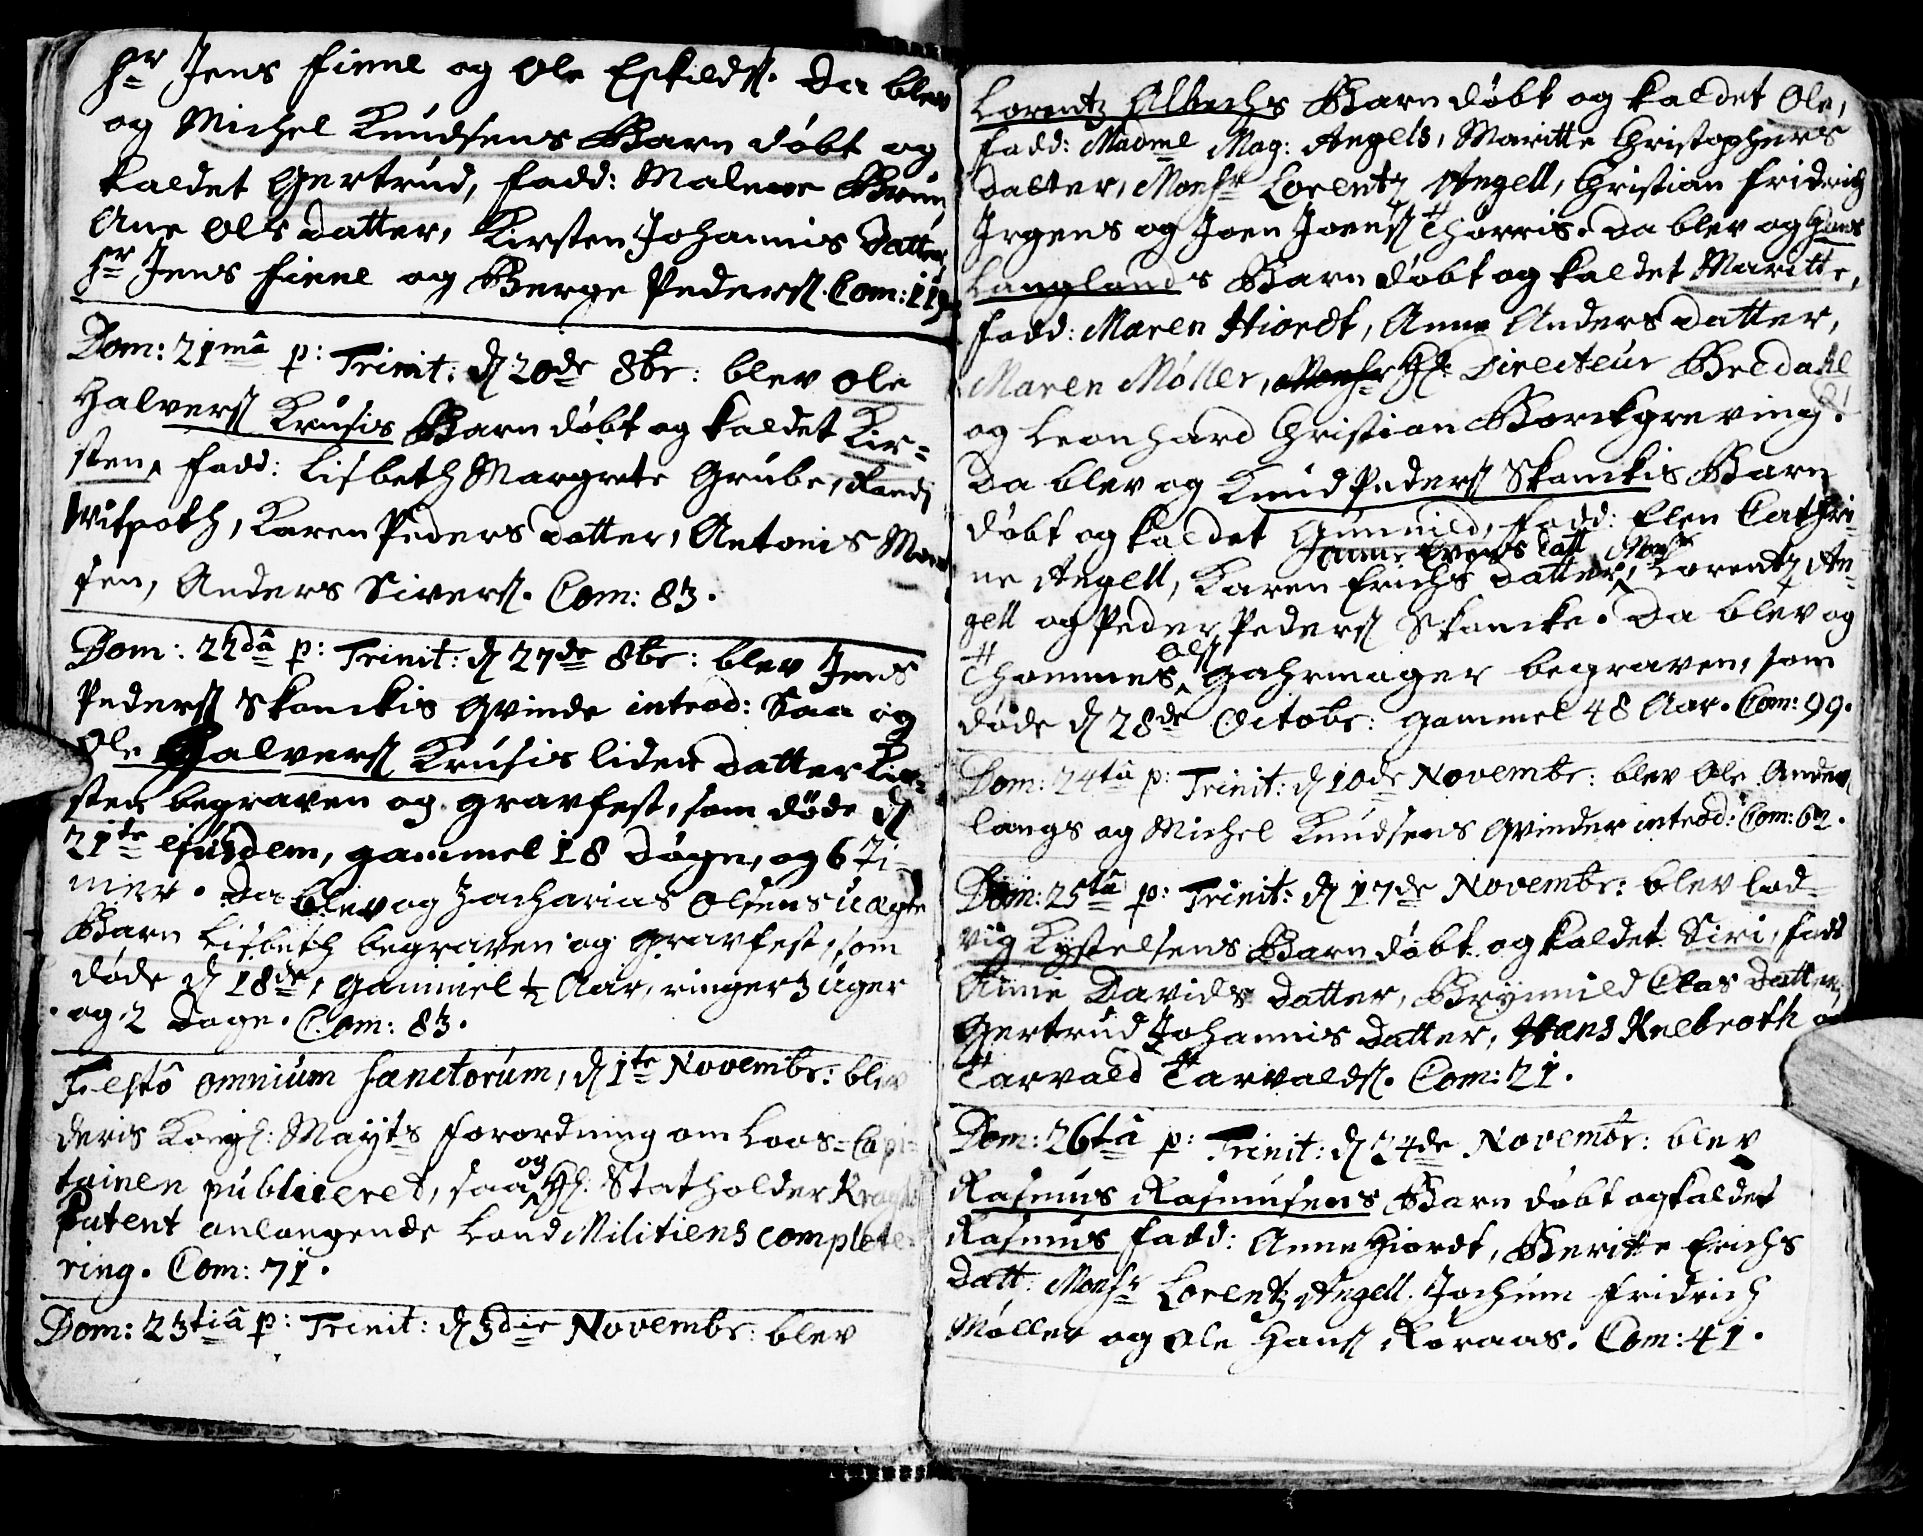 Hr Jens Finne og Ole Eskilds. Da blev
og Michel Knudsens Barn døbt og
kaldet Gertrud, fadd: Malene Brun,
Ane Ols datter, Kirsten Johannis datter,
Hr Jens Finne og Berge Peders. Com: 119.
Dom: 21mâ p: Trinit: d 20de 8br: blev Ole
Halvers Krusis Barn døbt og kaldet Kir=
sten, fadd: Lisbeth Margrete Grube, Randj
Witfoth, Karen Peders datter, Antonis
sen, Anders Sivers. Com: 83.
Dom: 22dâ p: Trinit: d 27de 8br: blev Jens
Peders Skanckis Qvinde introd: Saa og
Ole Halvers Krusis liden datter Kir=
sten begraven og gravfest, som døde d
21te ejusdem, gammel 18 døgn, og 6 Ti-
mer. Da blev og Zacharias Olsens uægte
Barn Lisbeth begraven og gravfest, som
døde d 18de, gammel ½ Aar, ringer 3 uger
og 2 dage. Com: 83.
Festô omnium sanctorum, d 1te Novembr: blev
deris Kongl: Mayts forordning om Loos=Capi-
tainen publiceret, saa og Hl. Statholder
Patent anlangende Land Militiens complete-
ring. Com: 71.
Dom: 23tiâ p: Trinit: d 3die Novembr: blev
Lorentz Albechs Barn døbt og kaldet Ole,
fadd: Madme Mag: Angels, Maritte Christophers
datter, Monsr Lorentz Angell, Christian Fridrich
Irgens og Joen Joens Thorris. Da blev og Hans
Langlands Barn døbt og kaldet Maritte,
fadd: Maren Hiordt, Anne Anders datter,
Maren Møller, Hl. Directeur Bredahl
og Leonhard Christian Borckgreving.
Da blev og Knud Peders Skanckis Barn
døbt og kaldet Gunnild, fadd: Elen Cathri-
ne Angell, Karen Erichs datter, Anne datt Monsr Lorentz An-
gell og Peder Peders Skancke. Da blev og
Thommes Ols Gahrmager begraven, som
døde d 28de Octobr: gammel 48 Aar. Com: 99.
Dom: 24tâ p: Trinit: d 10de Novembr: blev Ole Anders
langs og Michel Knudsens Qvinder introd: Com: 62.
Dom: 25tâ p: Trinit: d 17de Novembr: blev Lod=
vig Kystelsens Barn døbt og kaldet Siri, fadd
Anne Davids datter, Brynnild Clas datter,
Gertrud Johannis datter, Hans Knebroth og
Tarvald Tarvalds. Com: 21.
Dom: 26tâ p: Trinit: d 24de Novembr: blev
Rasmus Rasmusens Barn døbt og kaldet
Rasmus fadd: Anne Hiordt, Beritte Erichs
datt. Monsr Lorentz Angell. Jochum Fridrich
Møller og Ole Hans Røraas. Com: 41.